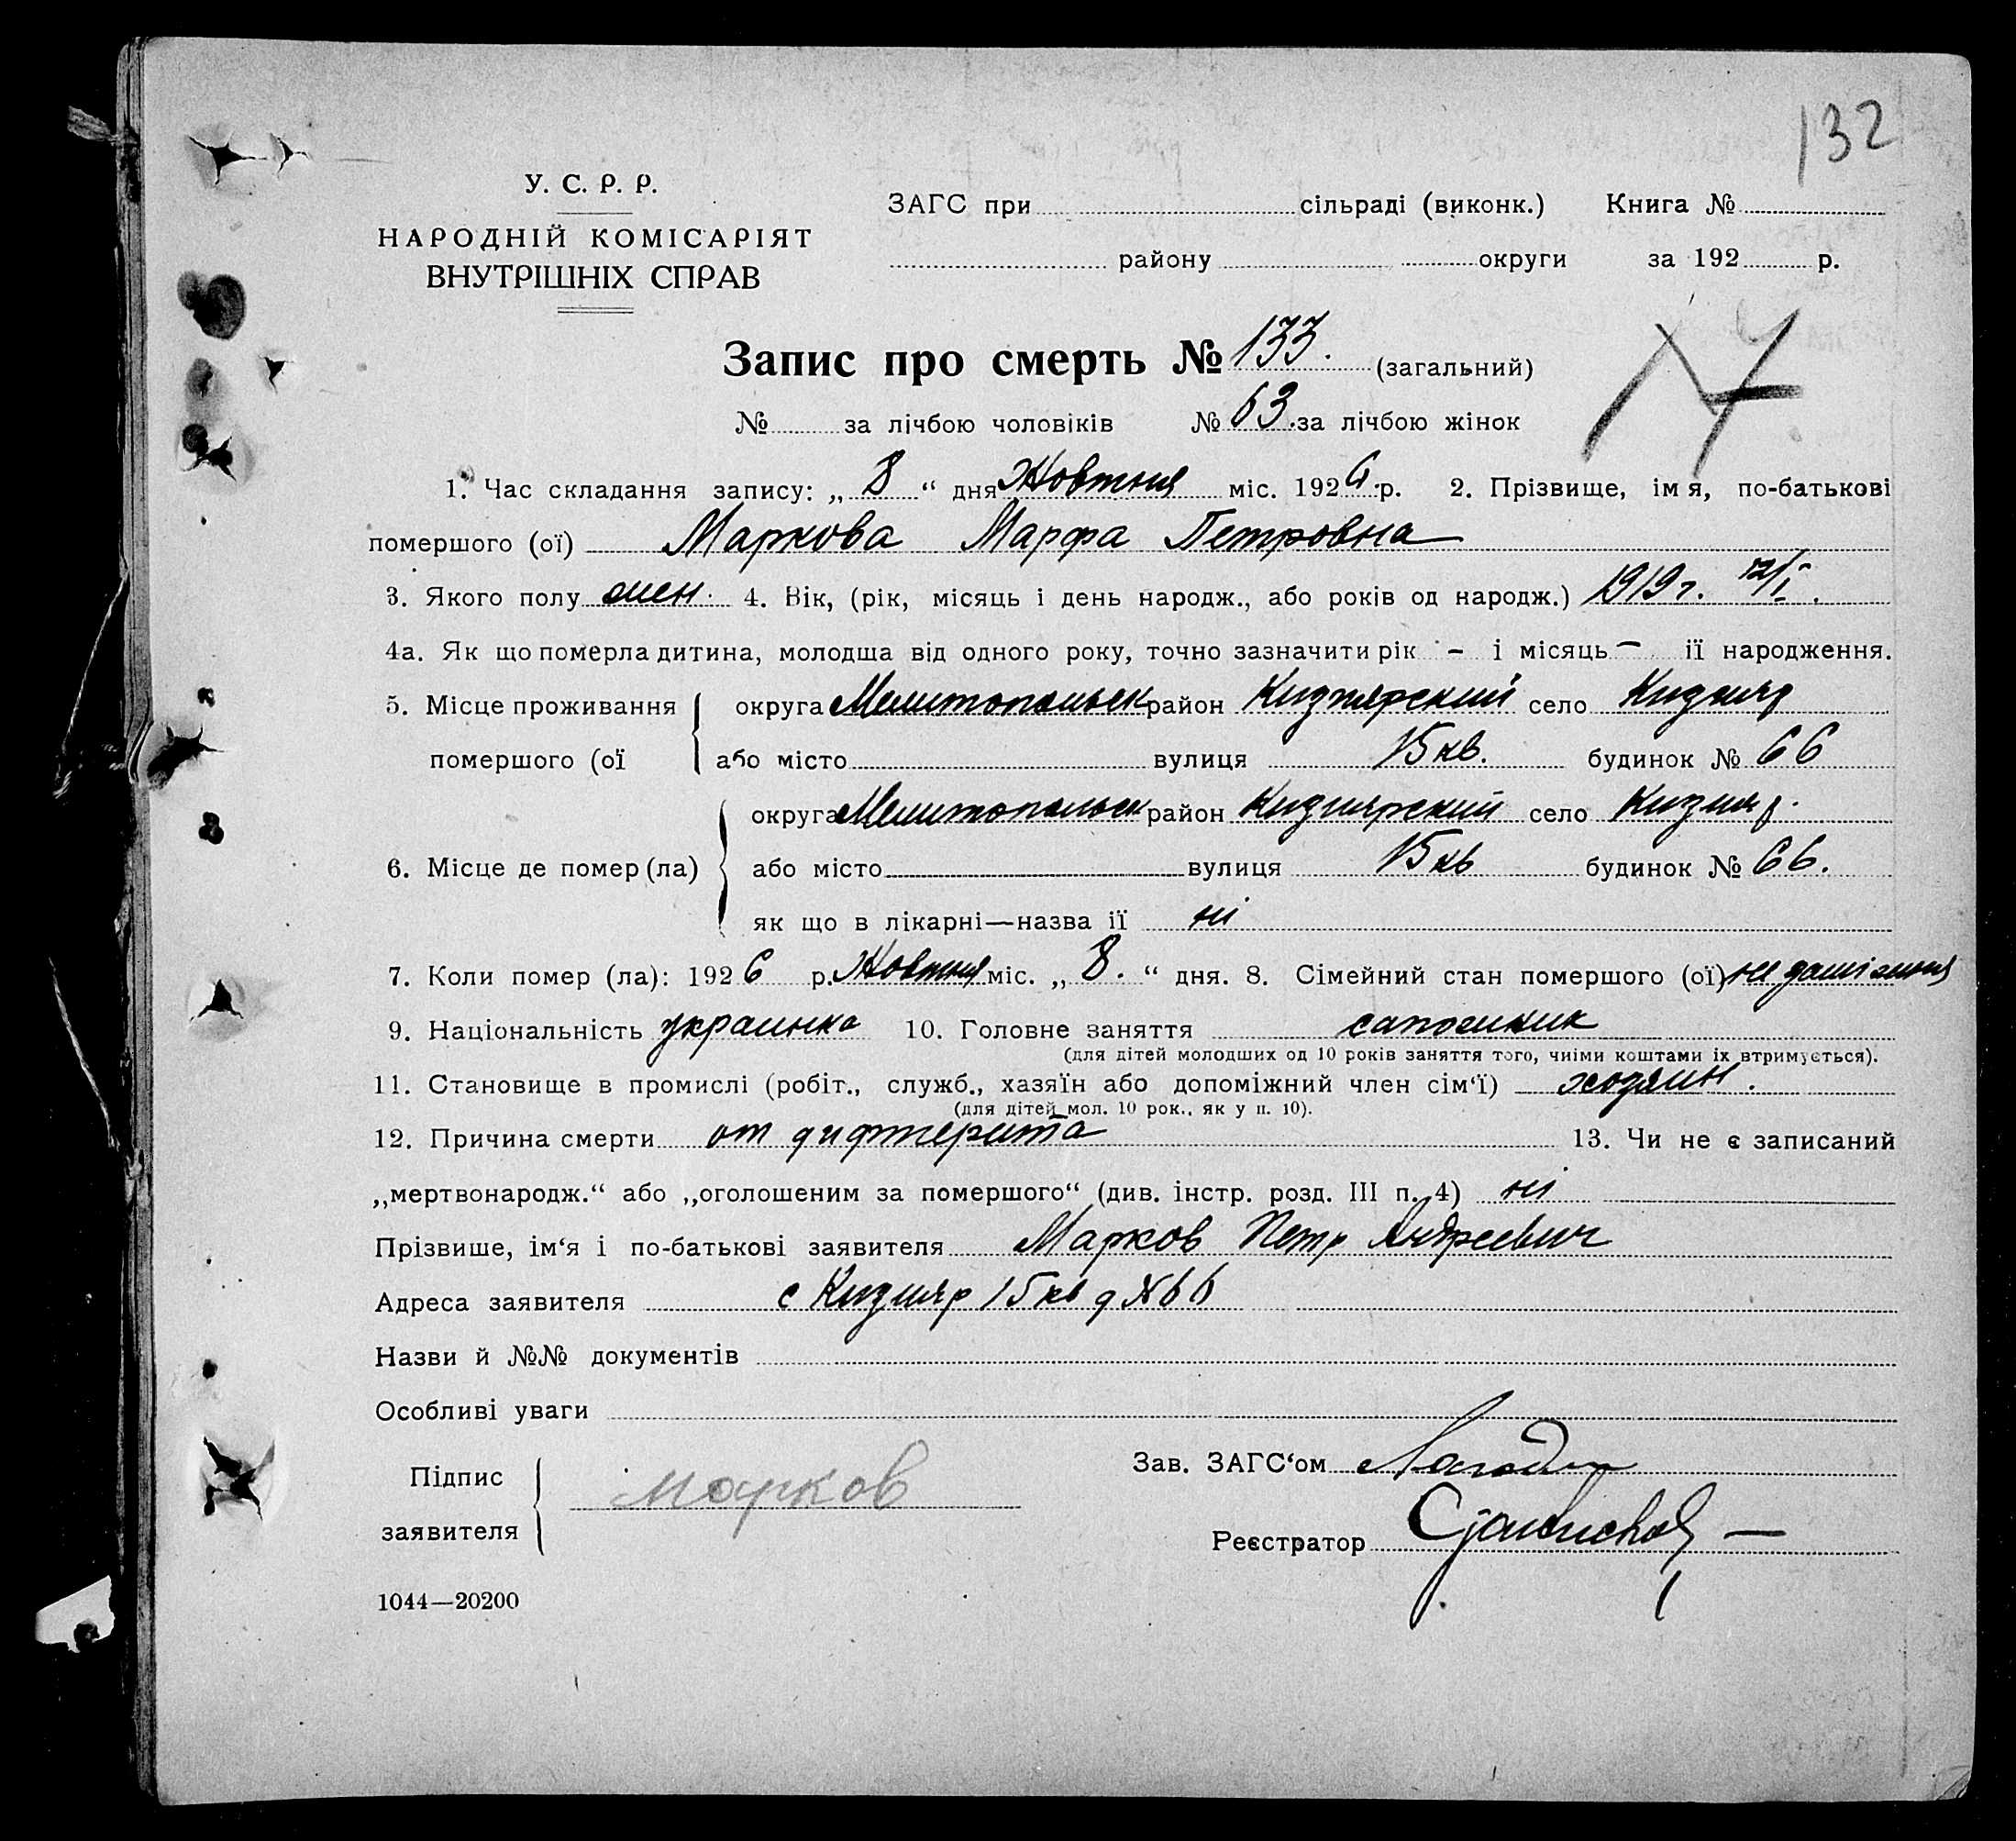 132
У. С. Р. Р.
НАРОДНІЙ КОМІСАРІЯТ
ВНУТРІШНІХ СПРАВ
ЗАГС при сільраді (виконк.) Книга №
району округи за 192 р.
Запис про смерть № 133. (загальний)
№ за лічбою чоловіків № 63. за лічбою жінок
1. Час складання запису: „ 8 “ дня Жовтня міс. 1926 р. 2. Прізвище, імя, по-батькові
помершого (ої) Маркова Марфа Петровна
3. Якого полу жен. 4. Вік, (рік, місяць і день народж., або років од народж.) 1919 г.
4а. Як що померла дитина, молодша від одного року, точно зазначити рік – і місяць – її народження.
5. Місце проживання округа Мелитопольск район Кизиярский село Кизияр
помершого (ої або місто вулиця 15 кв. будинок № 66
округа Мелитопольск район Кизиярский село Кизияр.
6. Місце де помер (ла) або місто вулиця 15 кв будинок № 66.
як що в лікарні—назва її ні
7. Коли помер (ла): 1926 р. Жовтня міс. „ 8. “ дня. 8. Сімейний стан помершого (ої) не
9. Національність украинка 10. Головне заняття сапожник
(для дітей молодших од 10 років заняття того, чиіми коштами їх втримується).
11. Становище в промислі (робіт., служб., хазяїн або допоміжний член сім‘ї) хозяин.
(для дітей мол. 10 рок., як у п. 10).
12. Причина смерти от дифтерита 13. Чи не є записаний
„мертвонародж.“ або „оголошеним за помершого“ (див. інстр. розд. III п. 4) ні
Прізвише, ім‘я і по-батькові заявителя Марков Петр Андреевич
Адреса заявителя с Кизияр 15 кв д № 66
Назви й №№ документів
Особливі уваги
Підпис
заявителя Марков
Зав. ЗАГС‘ом
Реєстратор
1044—20200